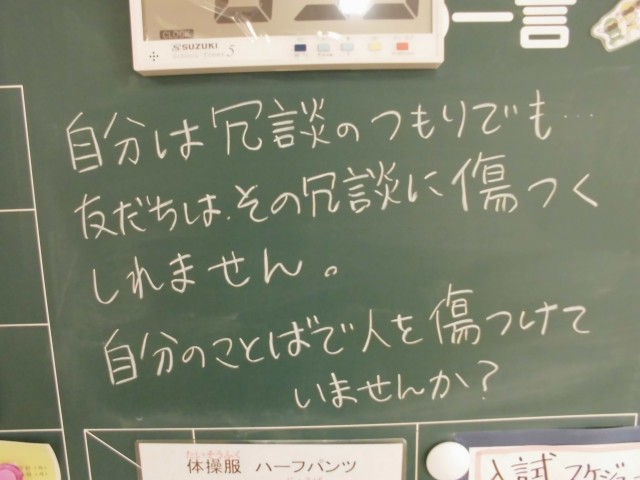 CLOSE
SUZUKI
5
一言
自分は冗談のつもりでも…
友だちは、その冗談に傷つく
しれません。
自分のことばで人を傷つけて
いませんか?
たいそうふく
体操服 ハーフパンツ
入試 スケジュ